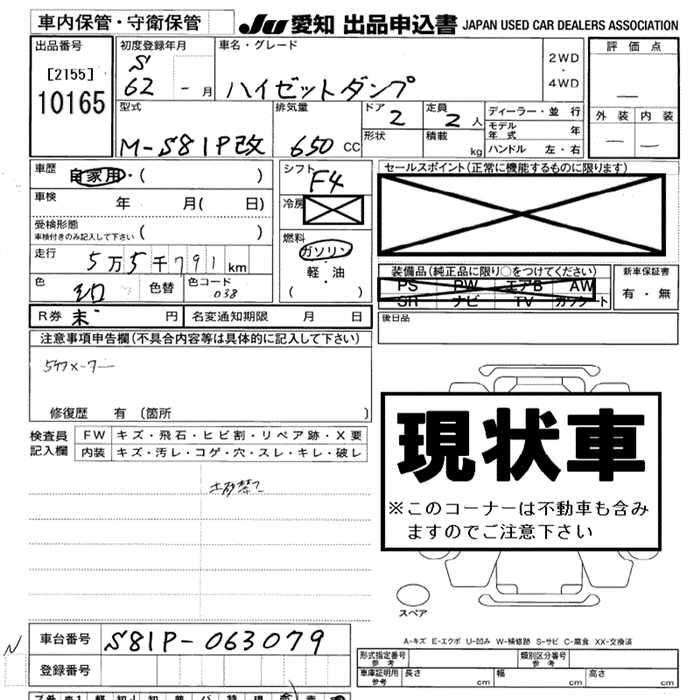 車内保管・守衛保管 JU 愛知 出品申込書 JAPAN USED CAR DEALERS ASSOCIATION
出品番号 初度登録年月 車名・グレード 評価点
[2155] S 2WD
10165 62 - 月 ハイゼットダンプ ・ —
4WD
型式 排気量 ドア 2 定員 2 人 ディーラー・並行 外装 内装
M-S81P改 650 CC 形状 積載 kg モデル年式 年 — —
ハンドル 左・右
車歴 自家用・( ) シフト F4 セールスポイント(正常に機能するものに限ります)
車検 年 月( 日) 冷房
受検形態
車検付きのみ記入して下さい ( ) 燃料
走行 5万5千791km ガソリン
装備品(純正品に限り○をつけてください) 新車保証書
色 シロ 色替 色コード 038 軽・油 PS PW エアB AW 有・無
( ) SR ナビ TV カセット
R券 未 円 名変通知期限 月 日 後日品
注意事項申告欄(不具合内容等は具体的に記入して下さい)
修復歴 有 (箇所 )
検査員 FW キズ・飛石・ヒビ割・リペア跡・X要
記入欄 内装 キズ・汚レ・コゲ・穴・スレ・キレ・破レ
土砂禁て
現状車
※このコーナーは不動車も含み
ますのでご注意下さい
スペア
A-キズ E-エクボ U-凹み W-補修跡 S-サビ C-腐食 XX-交換済
N 車台番号 S81P-063079
登録番号
形式指定番号 参考 類別区分番号 参考
車庫証明用 参考 長さ cm 幅 cm 高さ cm